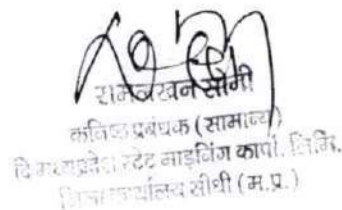 रामलखन सोनी
कनिष्ठ प्रबंधक (सामान्य)
दि मध्यप्रदेश स्टेट माइनिंग कार्पो. लिमि.
जिला कार्यालय सीधी (म.प्र.)